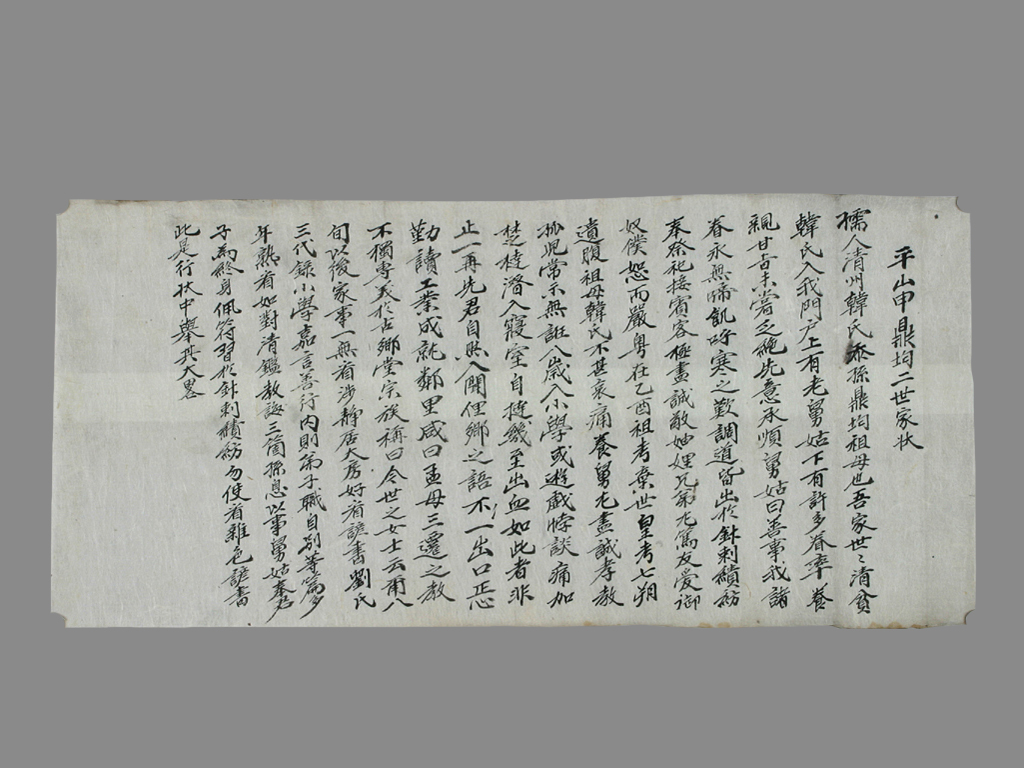 平山申鼎均二世家狀
孺人淸州韓氏忝孫鼎均祖母也吾家世〻淸貧
韓氏入我門戶上有老舅姑下有許多眷率養
親甘旨未嘗乏絶先意承順舅姑曰善事我諸
眷永無啼飢呼寒之歎調道皆出於針刺績紡
奉祭祀接賓客極盡誠敬妯娌兄弟尤篤友愛御
奴僕恕而嚴粤在乙酉祖考棄世皇考七朔
遺腹祖母韓氏不甚哀痛養舅尤盡誠孝敎
孤兒常示無誑八歲入小學或遊戱悖談痛加
楚撻潛入寢室自撻幾至出血如此者非
止一再先君自然入闗俚鄕之語不一出口正心
勤讀工業成就鄰里咸曰孟母三遷之敎
不獨專美於古鄕黨宗族稱曰今世之女士云爾八
旬以後家事一無看涉靜居大房好看諺書劉氏
三代錄小學嘉言善行內則弟子職自別等篇多
年熟看如對淸鑑敎誨三箇孫息以事舅姑奉君
子爲終身佩符習於針刺績紡勿使看雜色諺書
此是行狀中擧其大畧